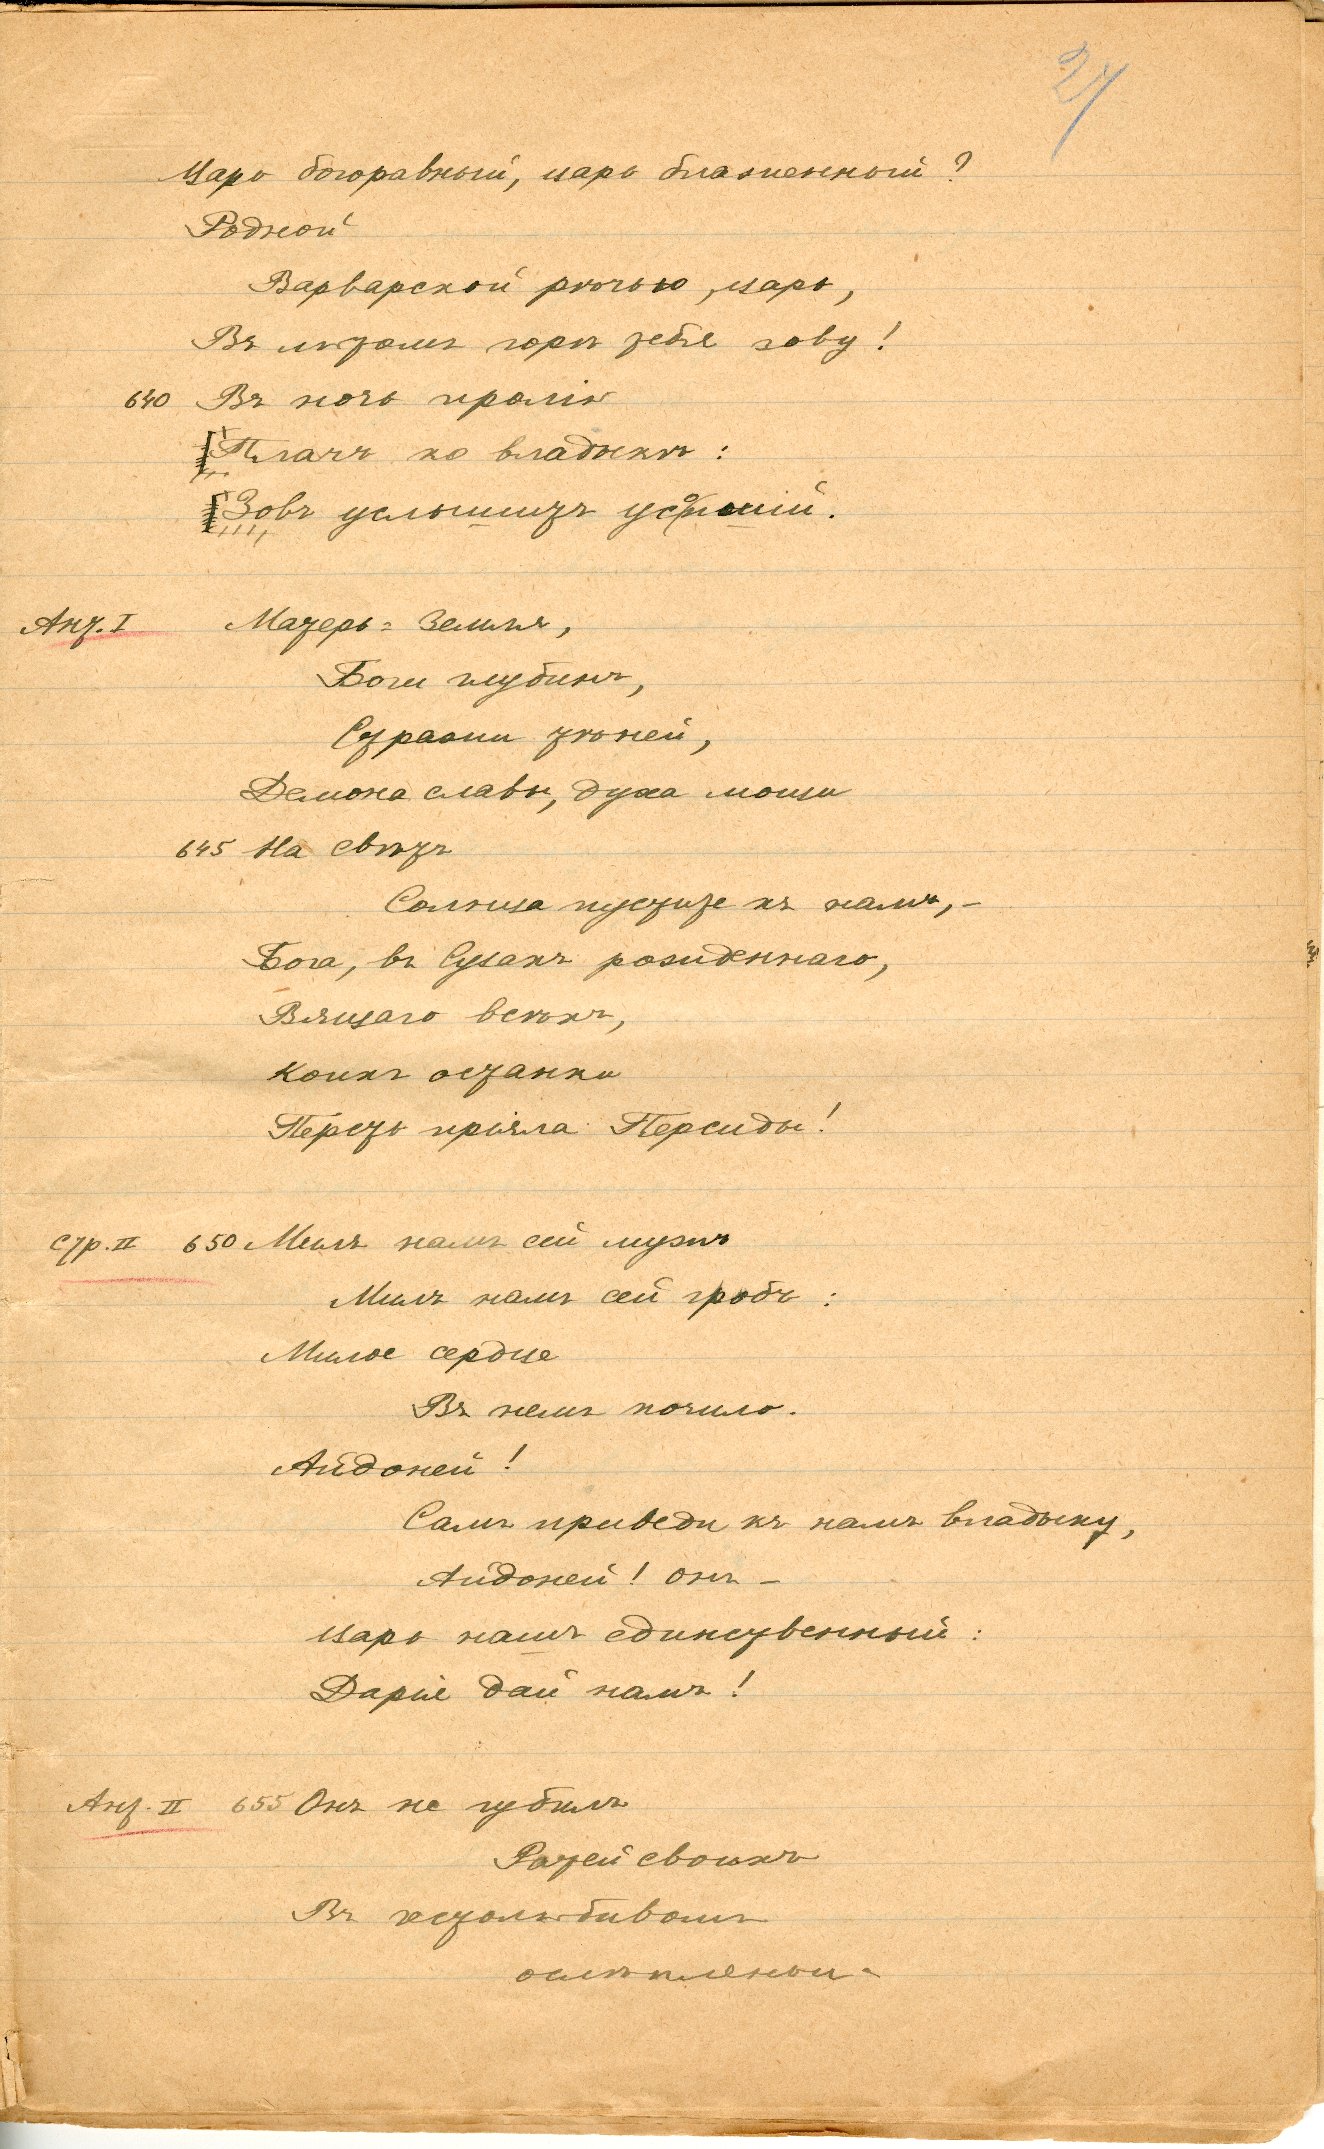 27
Царь богоравный, царь блаженный?
Родной
Варварской рѣчью, царь,
Въ лютомъ горѣ тебя зову!
640 Въ ночь пролію
Плачъ ко владыкѣ:
Зовъ услышитъ усопшій.
Ант. I Матерь-Земля,
Боги глубинъ,
Стражи тѣней,
Демона славы, духа мощи
645 На свѣтъ
Солнца пустите къ намъ,—
Бога, въ Сузахъ рожденнаго,
Вящаго всѣхъ,
Коихъ останки
Персть пріяла Персиды!
Стр. II 650 Милъ намъ сей мужъ
Милъ намъ сей гробъ:
Милое сердце
Въ немъ почило.
Аидоней!
Самъ приведи къ намъ владыку,
Аидоней! онъ —
Царь нашъ единственный:
Дарія дай намъ!
Ант. II 655 Онъ не губилъ
Ратей своихъ
Въ честолюбивомъ
ослѣпленьи